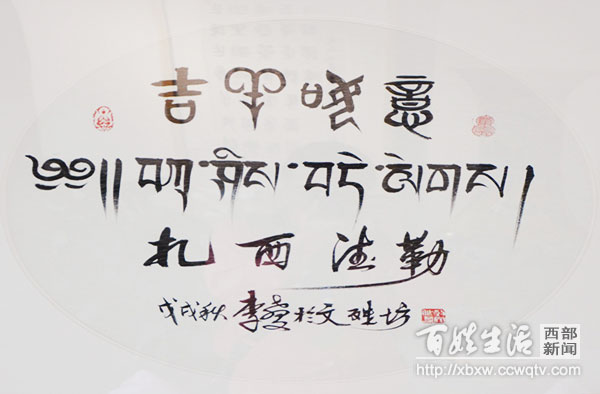 吉羊如意
༄༅།། བཀྲ་ཤིས་བདེ་ལེགས།
扎西德勒
戊戌秋 李 於文 坊
百姓生活 西部新闻
http://xbxw.ccwqtv.com